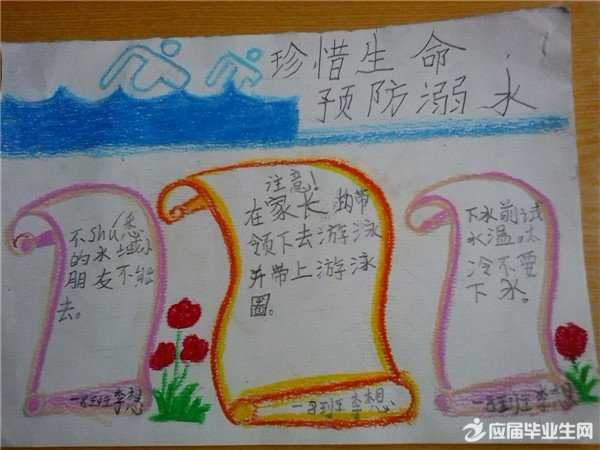 珍惜生命
预防溺水
不shu悉
的水域小
朋友不能
去。
李想
注意!
在家长的带
领下去游泳
并带上游泳
圈。
李想
下水前试
水温太
冷不要
下水。
李想
应届毕业生网